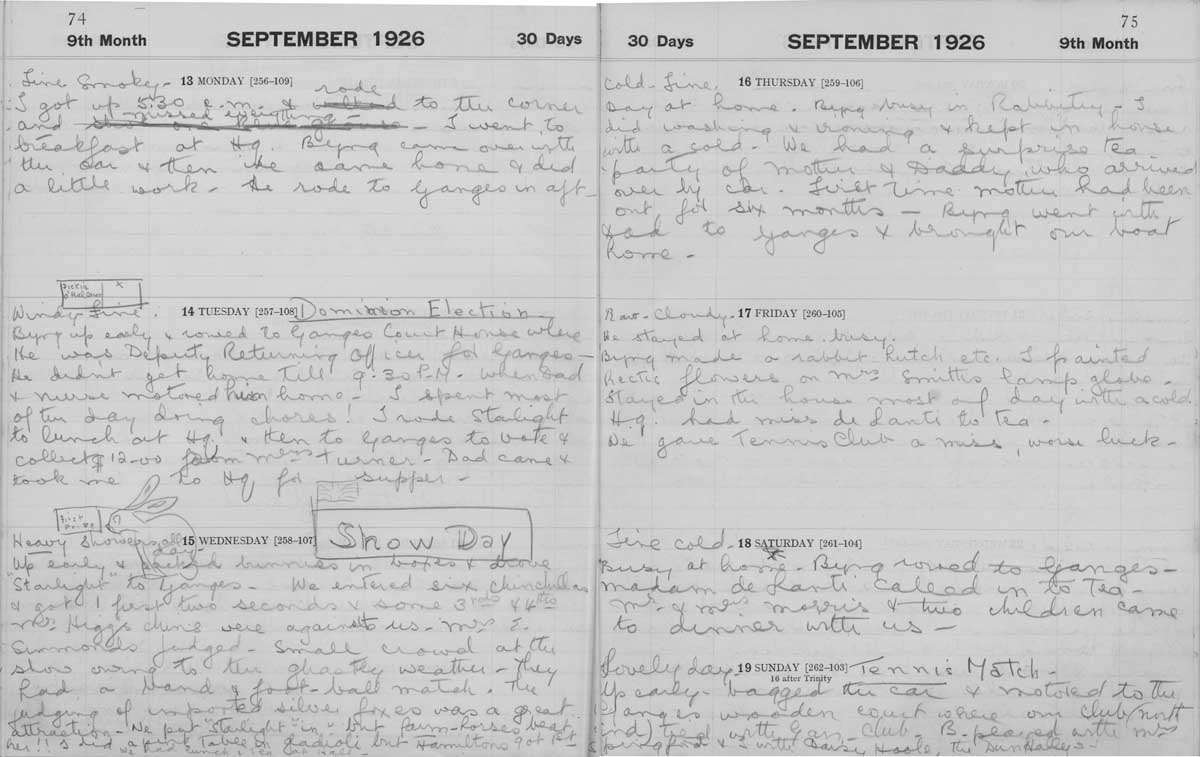 74
9th Month SEPTEMBER 1926 30 Days
Fine Smoky - 13 MONDAY [256-109]
rode
I got up 5.30 a.m. & walked to the corner
missed everything -
and - I went to
breakfast at Hq. Byng came over with
the car & then we came home & did
a little work - He rode to Ganges in aft -
Dickie X
Windy Fine. 14 TUESDAY [257-108] Dominion Election
Byng up early & rowed to Ganges Court House where
He was Deputy Returning Officer for Ganges -
He didn't get home Till 9.30 P.M. when Dad
& nurse motored him home - I spent most
of the day doing chores! I rode Starlight
to lunch at Hq. & then to Ganges to vote &
collect $12.00 from Mrs Turner - Dad came &
took me to Hq for supper -
First Prize
Heavy Showers all day - 15 WEDNESDAY [258-107] Show Day
Up early & packed bunnies in boxes & drove
"Starlight" to Ganges - We entered six chinchillas
& got 1 first two seconds & some 3rds & 4ths
Mrs. Higgs were against us - Mrs E.
Summonds judged - Small crowd at the
show owing to the ghastly weather - They
had a band & foot-ball match. The
judging of imported silver foxes was a great
attraction - We put "Starlight" in - but farm-horses beat
her!! I did a Table in gladioli but Hamiltons got 1st -
75
30 Days SEPTEMBER 1926 9th Month
Cold - Fine. 16 THURSDAY [259-106]
Day at home. Byng busy in Rabbitry - I
did washing & ironing & kept in house
with a cold - We had a surprise tea
party of mother & Daddy, who arrived
over by car. First Time mother had been
out for six months - Byng went with
Dad to Ganges & brought our boat
home -
Raw - Cloudy - 17 FRIDAY [260-105]
We stayed at home. busy.
Byng made a rabbit hutch etc. I painted
flowers on Mrs Smith's lamp globe -
Stayed in the house most of day with a cold
H.q. had miss de Lanti to Tea -
We gave Tennis Club a miss, worse luck -
Fine cold. 18 SATURDAY [261-104]
Busy at home - Byng rowed to Ganges -
madam de Lanti called in to Tea -
Mr. & Mrs morris & two children came
to dinner with us -
Lovely day 19 SUNDAY [262-103] Tennis Match -
16 after Trinity
Up early - bagged the car & motored to the
Ganges wooden court where our club (north
end) tied with Gan. Club - B. played with Mrs
Springford & I with Daisy Hoole, the